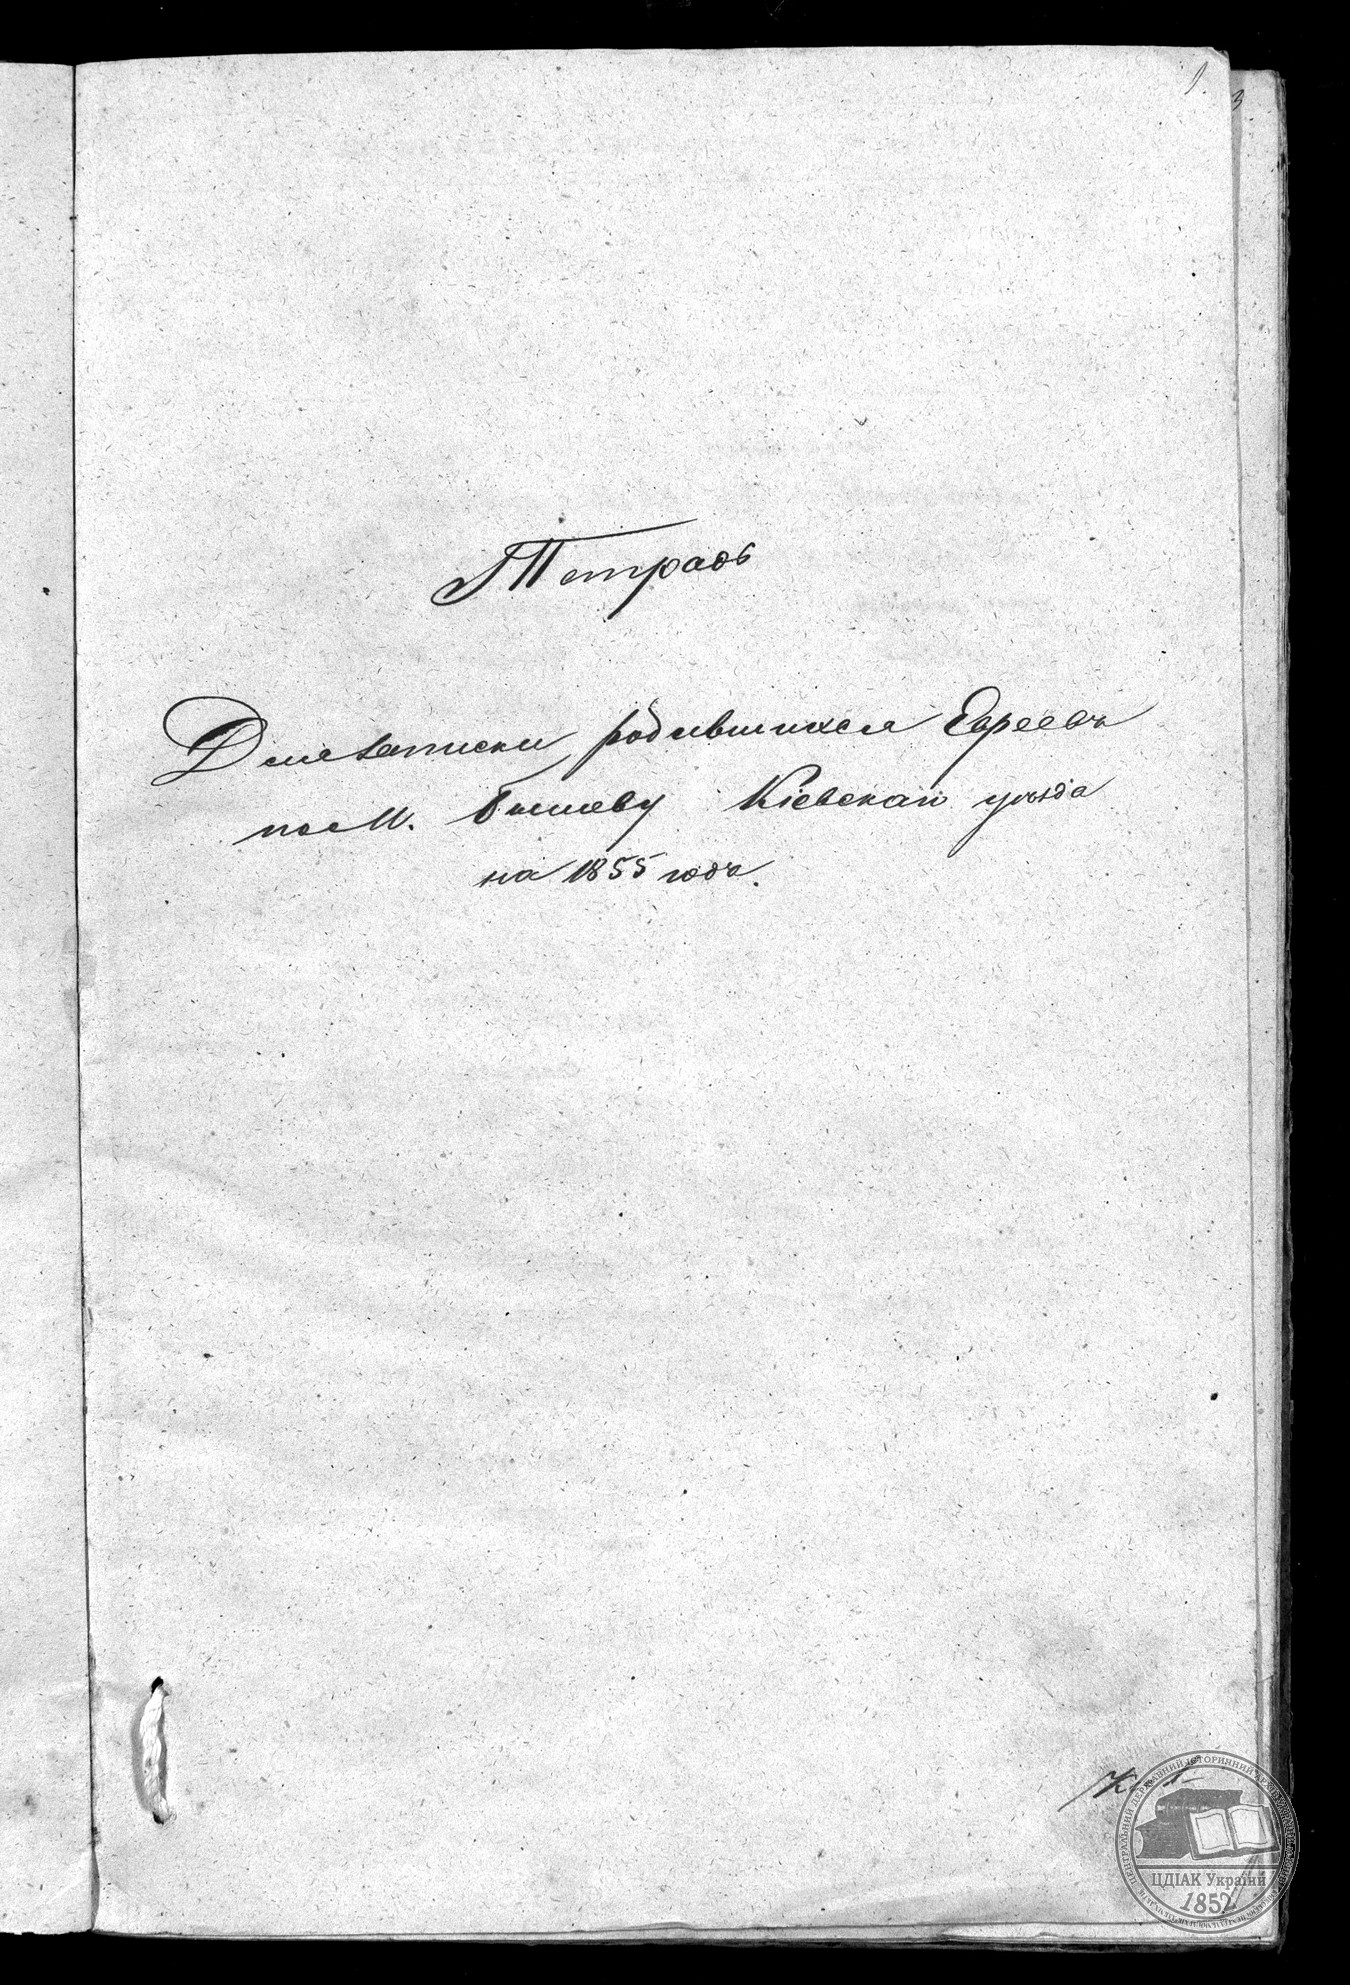 1.
3
Тетрадь
Для записки родившихся Евреевъ
по М. Бышеву Кіевскаго уѣзда
на 1855 годъ.
ЦДІАК України
1852